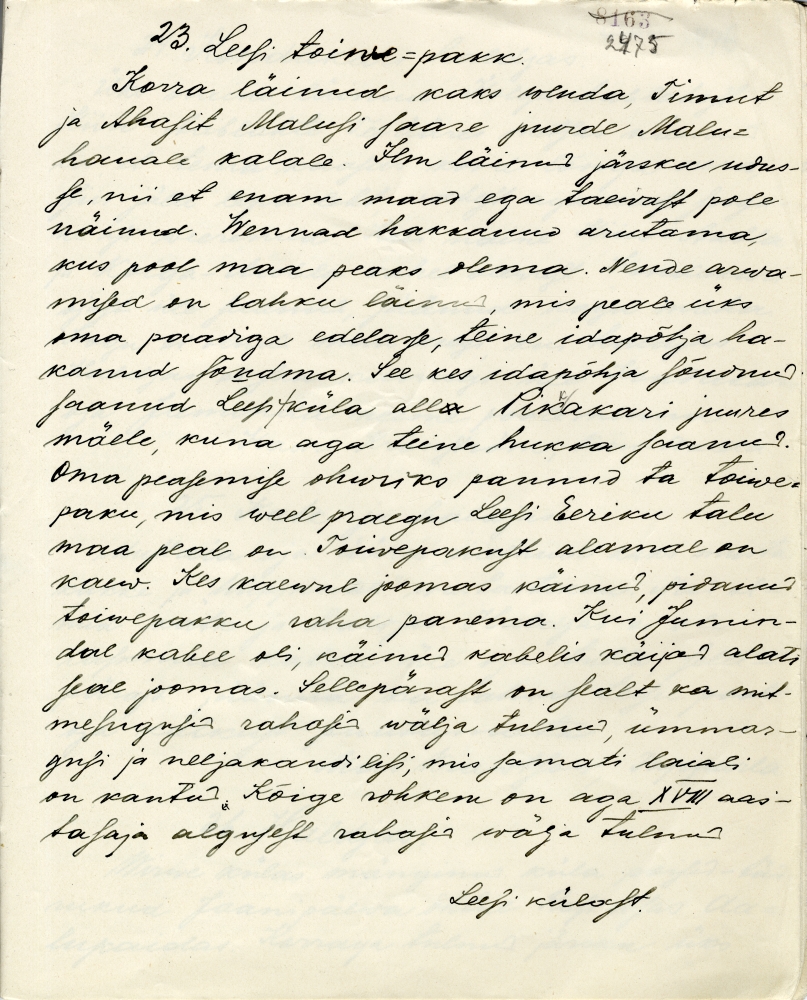 8163
2475
23. Leesi toiwe=pakk.
Korra läinud kaks wenda, Timut
ja Ahasit Malusi saare juurde Malu=
hauale kalale. Ilm läinud järsku udus-
se, nii et enam maad ega taewast pole
näinud. Wennad hakkanud arutama,
kus pool maa peaks olema. Nende arwa-
mised on lahku läinud, mis peale üks
oma paadiga edelasse, teine idapõhja ha-
kanud sõudma. See kes idapõhja sõudnud
saanud Leesi küla alla Pikakari juures
mäele, kuna aga teine hukka saanud.
Oma peasemise ohwriks pannud ta toiwe=
paku, mis weel praegu Leesi Eeriku talu
maa peal on. Toiwepakust alamal on
kaew. Kes kaewul joomas käinud, pidanud
toiwepakku raha panema. Kui Jumin-
dal kabel oli, käinud kabelis käijad alati
seal joomas. Sellepärast on sealt ka mit-
mesugusid rahasid wälja tulnud, ümmar-
gusi ja neljakandilisi, mis samati laiali
on kantud. Kõige rohkem on aga XVIII aas-
tasaja algusest rahasid wälja tulnud
Leesi külast.